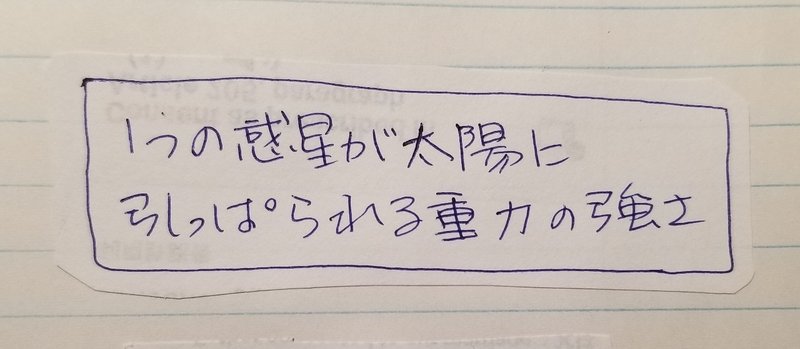 1つの惑星が太陽に
引っぱられる重力の強さ